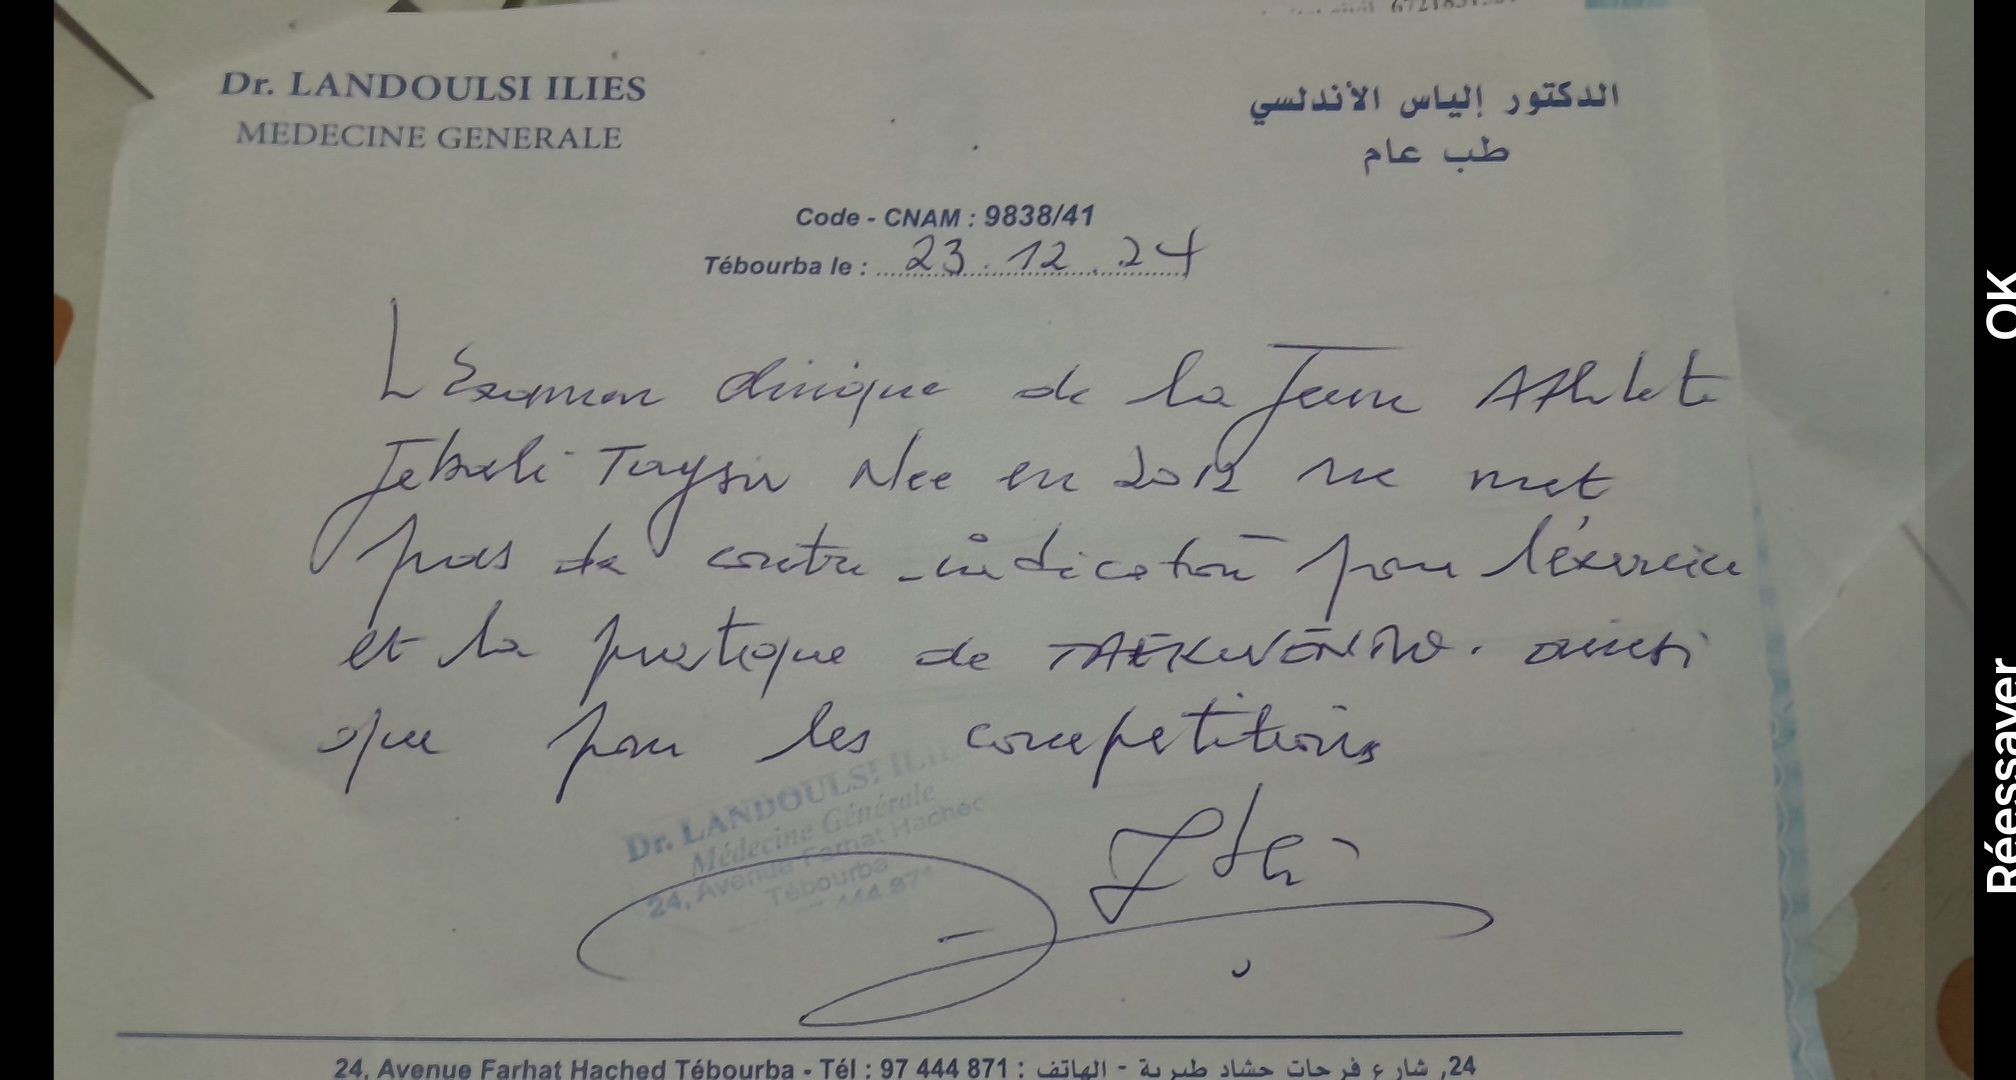 Dr. LANDOULSI ILIES
MEDECINE GENERALE
الدكتور إلياس الأندلسي
طب عام
Code - CNAM : 9838/41
Tébourba le : 23.12.24
L'Examen clinique de la Jeune Athlète
Jebali Taysir Née en 2012 ne met
pas de contre-indication pour l'éxercice
et la pratique de TAEKWONDO. ainsi
que pour les competitions
Dr. LANDOULSI ILIES
Médecine Générale
24, Avenue Farhat Hached
Tébourba
444 871
24, Avenue Farhat Hached Tébourba - Tél : 97 444 871 : الهاتف - 24, شارع فرحات حشاد طبربة
OK
Réessayer